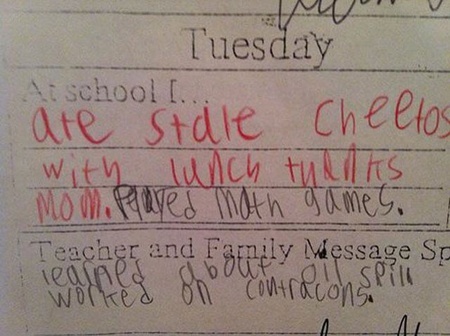 Tuesday
At school I...
ate stale Cheetos
with lunch thanks
Mom. Played math games.
Teacher and Family Message Sp
learned about oil spill
worked on contracons.